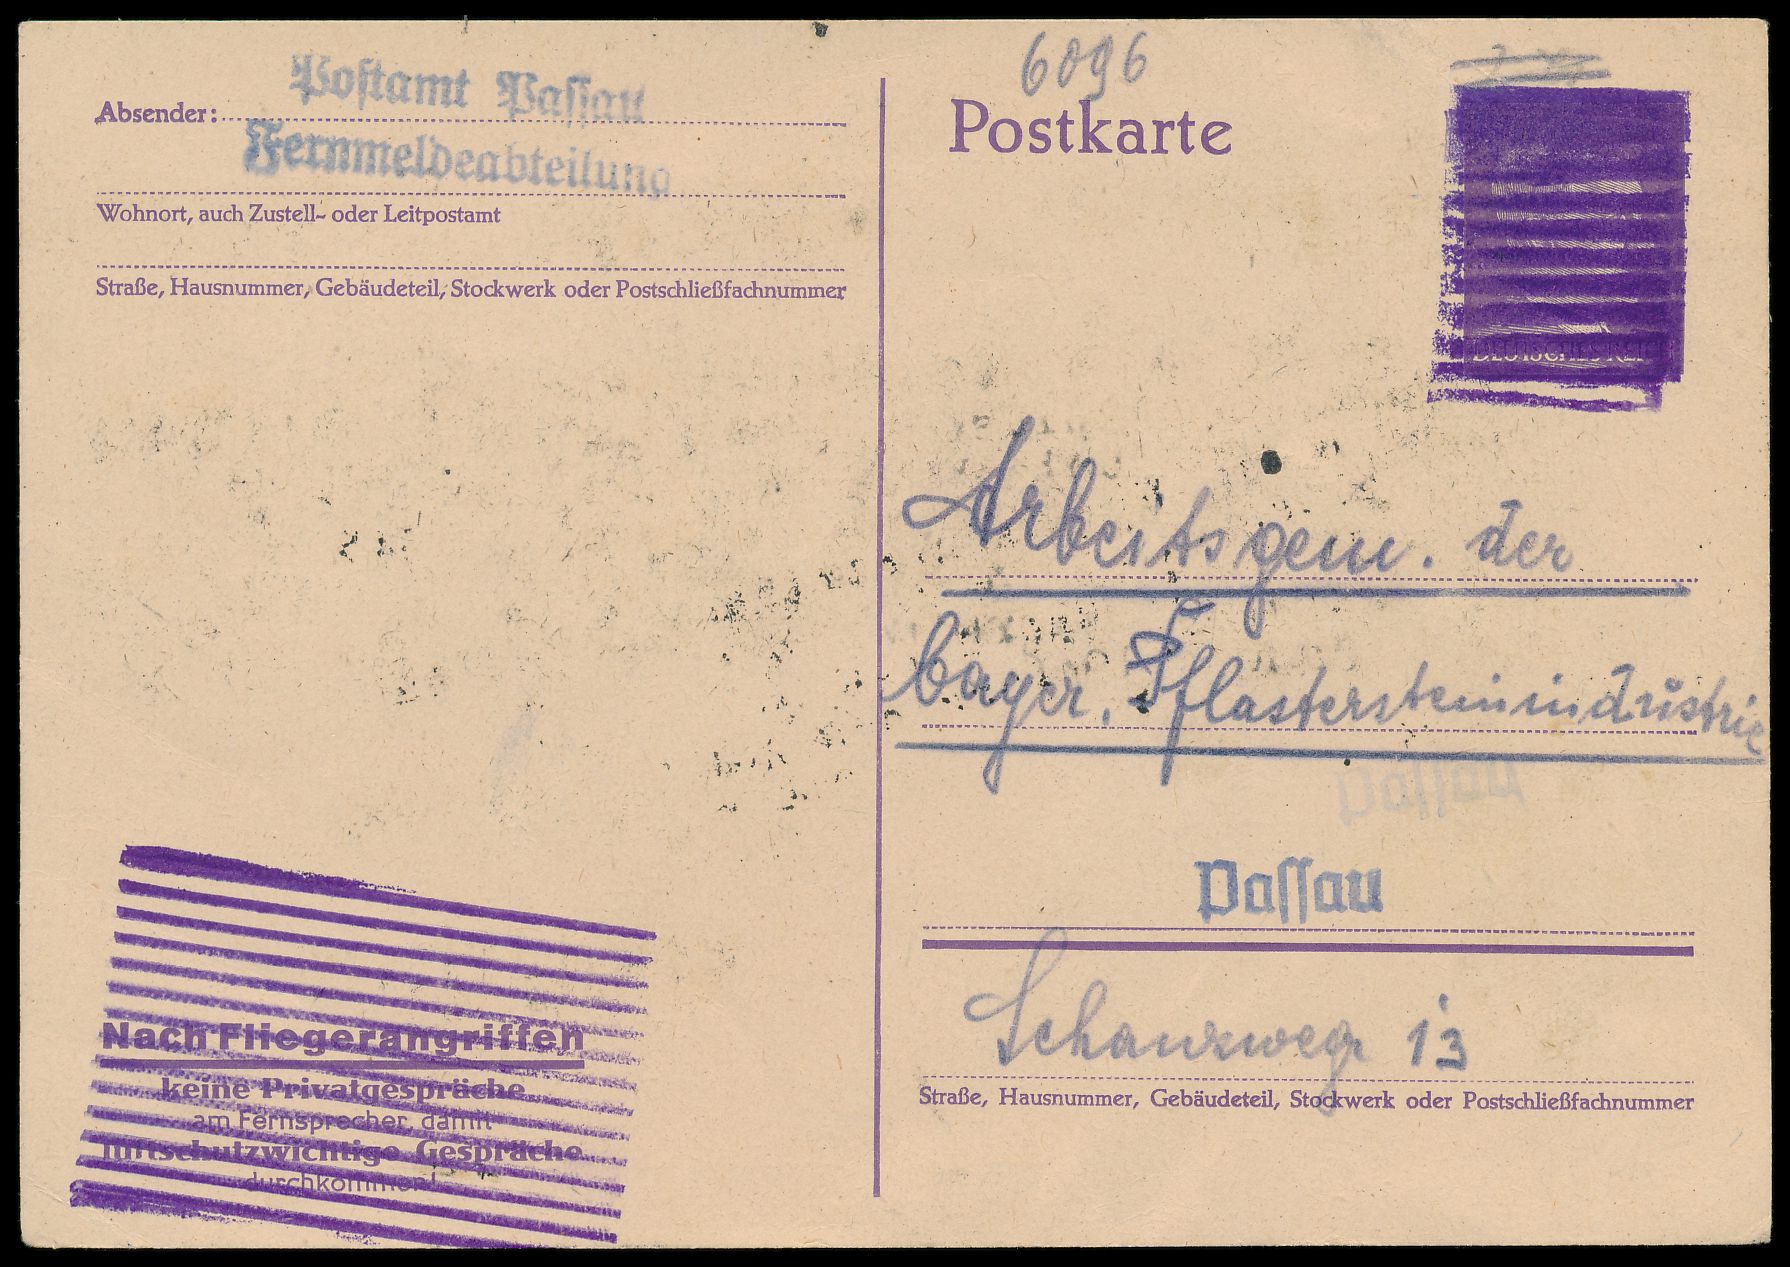 Postamt Passau
Absender:
Fernmeldeabteilung
Wohnort, auch Zustell- oder Leitpostamt
Straße, Hausnummer, Gebäudeteil, Stockwerk oder Postschließfachnummer
Nach Fliegerangriffen
keine Privatgespräche
am Fernsprecher, damit
luftschutzwichtige Gespräche
durchkommen!
6096
Postkarte
DEUTSCHES REI
Arbeitsgem. der
bayer. Pflastersteinindustrie
Passau
Passau
Schanzweg 13
Straße, Hausnummer, Gebäudeteil, Stockwerk oder Postschließfachnummer